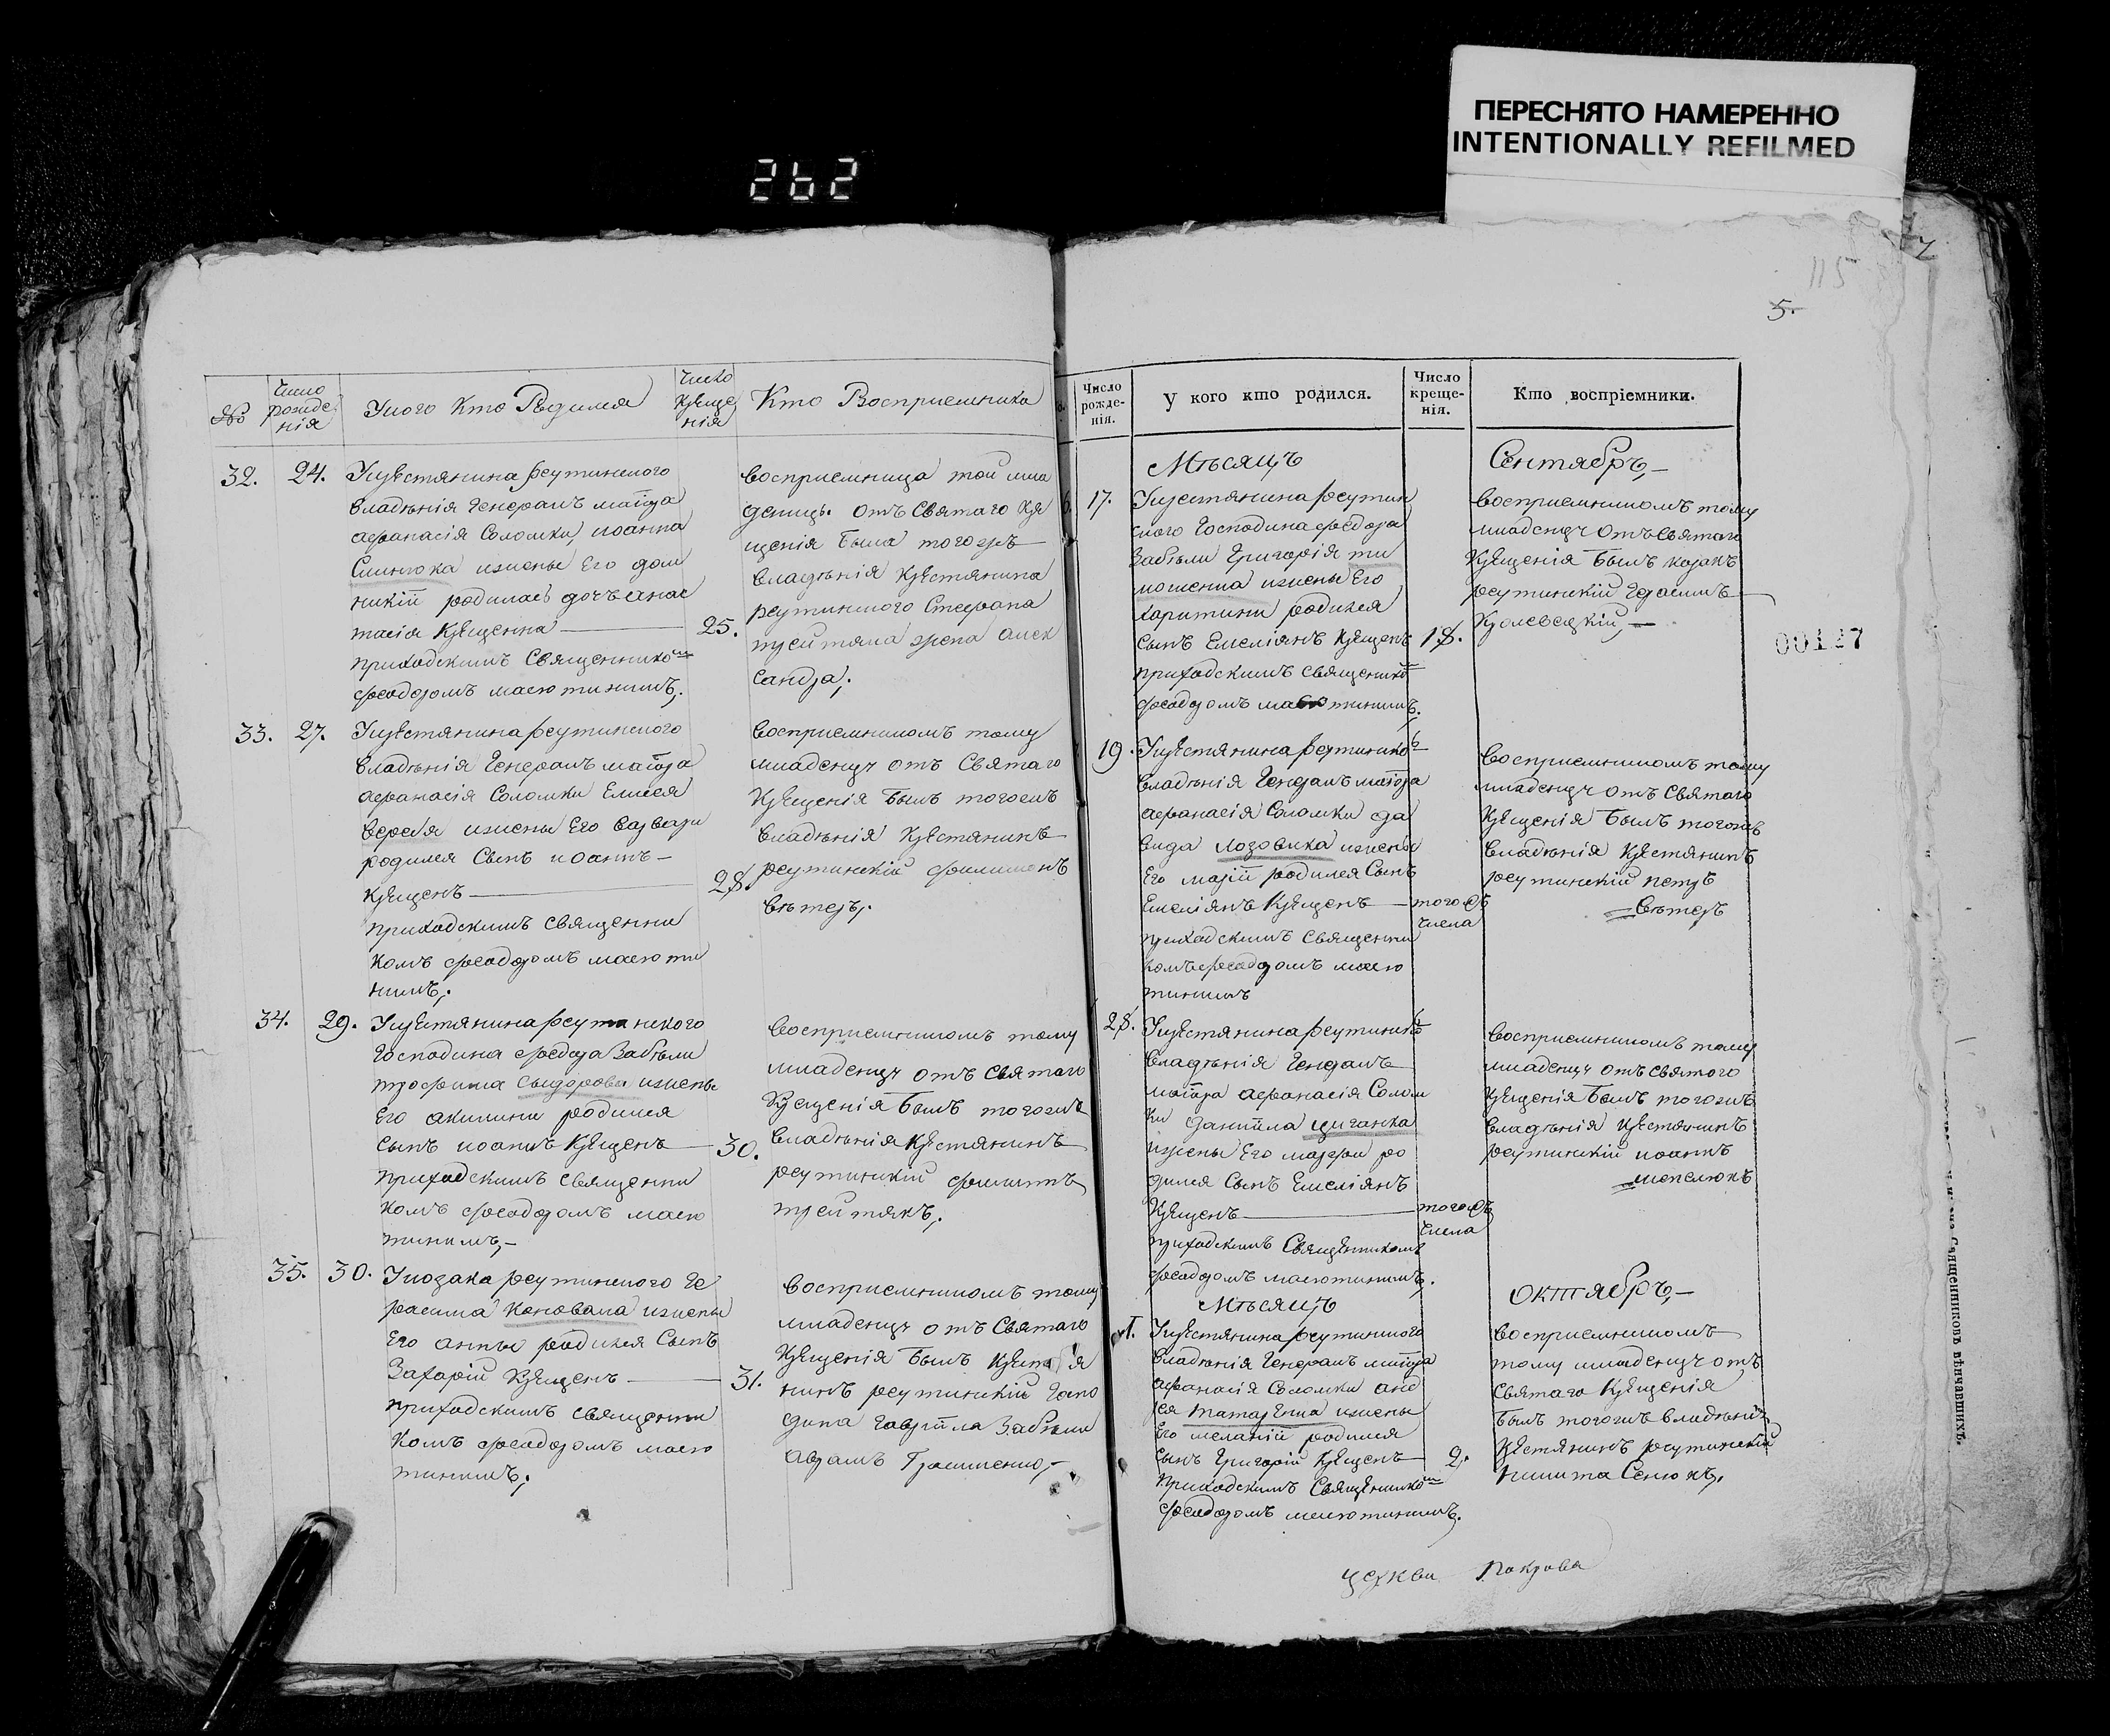 ПЕРЕСНЯТО НАМЕРЕННО
INTENTIONALLY REFILMED
262
115
5.
00117
№
Число рожде нія
Укого Кто Родился
Число Крещенія
Кто Восприемники
32.
24.
Укрестянина реутинского
владѣнія Генералъ маіора
афанасія Соломки, иоанна
изжены Его дом
никіи родилась дочь анас
тасія Крещенна
25.
приходскимъ Священникомъ
феодоромъ масютинимъ;
восприемница той мла
денць. отъ Святаго Кре
щенія Была тогожъ
владѣнія Крестянина
реутинского Стефана
трейтяка жена алек
сандра;
33.
27.
Укрестянина реутинского
владѣнія Генералъ маіора
афанасія Соломки Елисея
изжены Его варвары
родился Сынъ иоаннъ
Крещенъ
28.
приходскимъ Священни
комъ феодоромъ масюти
нимъ;
восприемникомъ тому
младенцу отъ Святаго
Крещенія Былъ тогожъ
владѣнія Крестянинъ
реутинскій филимонъ
вѣтеръ;
34.
29.
Укрестянина реутинского
Господина феодора Забѣли
трофима Сидорова изжены
Его акилини родился
Сынъ иоаннъ Крещенъ
30.
приходскимъ Священни
комъ феодоромъ масю
тинимъ;
восприемникомъ тому
младенцу отъ Святаго
Крещенія Былъ тогожъ
владѣнія Крестянинъ
реутинскій филиппъ
трейтякъ;
35.
30.
Укозака реутинского Ге
расима Коновала изжены
Его анны родился Сынъ
Захарій Крещенъ
31.
приходскимъ Священни
комъ феодоромъ масю
тинимъ;
восприемникомъ тому
младенцу отъ Святаго
Крещенія Былъ Крестя
нинъ реутинскій Госпо
дина Гавріила Забѣли
аврамъ
Число рожде-нія.
У кого кто родился.
Число креще-нія.
Кто воспріемники.
Мѣсяцъ
Сентябръ,
17.
Укрестянина реутин
ского Господина феодора
Забѣли Григорія ти
мошенка изжены Его
харитини родился
Сынъ Емеліянъ Крещенъ
18.
приходскимъ Священикомъ
феодоромъ масютинимъ;
восприемникомъ тому
младенцу отъ Святаго
Крещенія Былъ козакъ
реутинскій Герасимъ
Кролевецкій,
19.
Укрестянина реутинског
владѣнія Генералъ маіора
афанасія Соломки да
вида лозовика изжены
Его маріи родился Сынъ
Емеліянъ Крещенъ
тогожъ
числа
приходскимъ Священни
комъ феодоромъ масю
тинимъ
восприемникомъ тому
младенцу отъ Святаго
Крещенія Былъ тогожъ
владѣнія Крестянинъ
реутинскій петръ
вѣтеръ
28.
Укрестянина реутинског
владѣнія Генералъ
маіора афанасія Солом
ки даніила циганка
изжены Его марфи ро
дился Сынъ Емеліянъ
Крещенъ
тогожъ
числа
приходскимъ Священикомъ
феодоромъ масютинимъ.
восприемникомъ тому
младенцу отъ Святого
Крещенія Былъ тогожъ
владѣнія Крестянинъ
реутинскій иоаннъ
Мѣсяцъ
октябръ,
1.
Укрестянина реутинского
владѣнія Генералъ маіора
афанасія Соломки анд
рея татаренка изжены
Его меланіи родился
Сынъ Григорій Крещенъ
2.
приходскимъ Священникомъ
феодоромъ масютинимъ.
восприемникомъ
тому младенцу отъ
Святаго Крещенія
Былъ тогожъ владѣнія
Крестянинъ реутинскій
никита Сенюкъ,
церкви Покрова
Священниковъ вѣнчавшихъ.